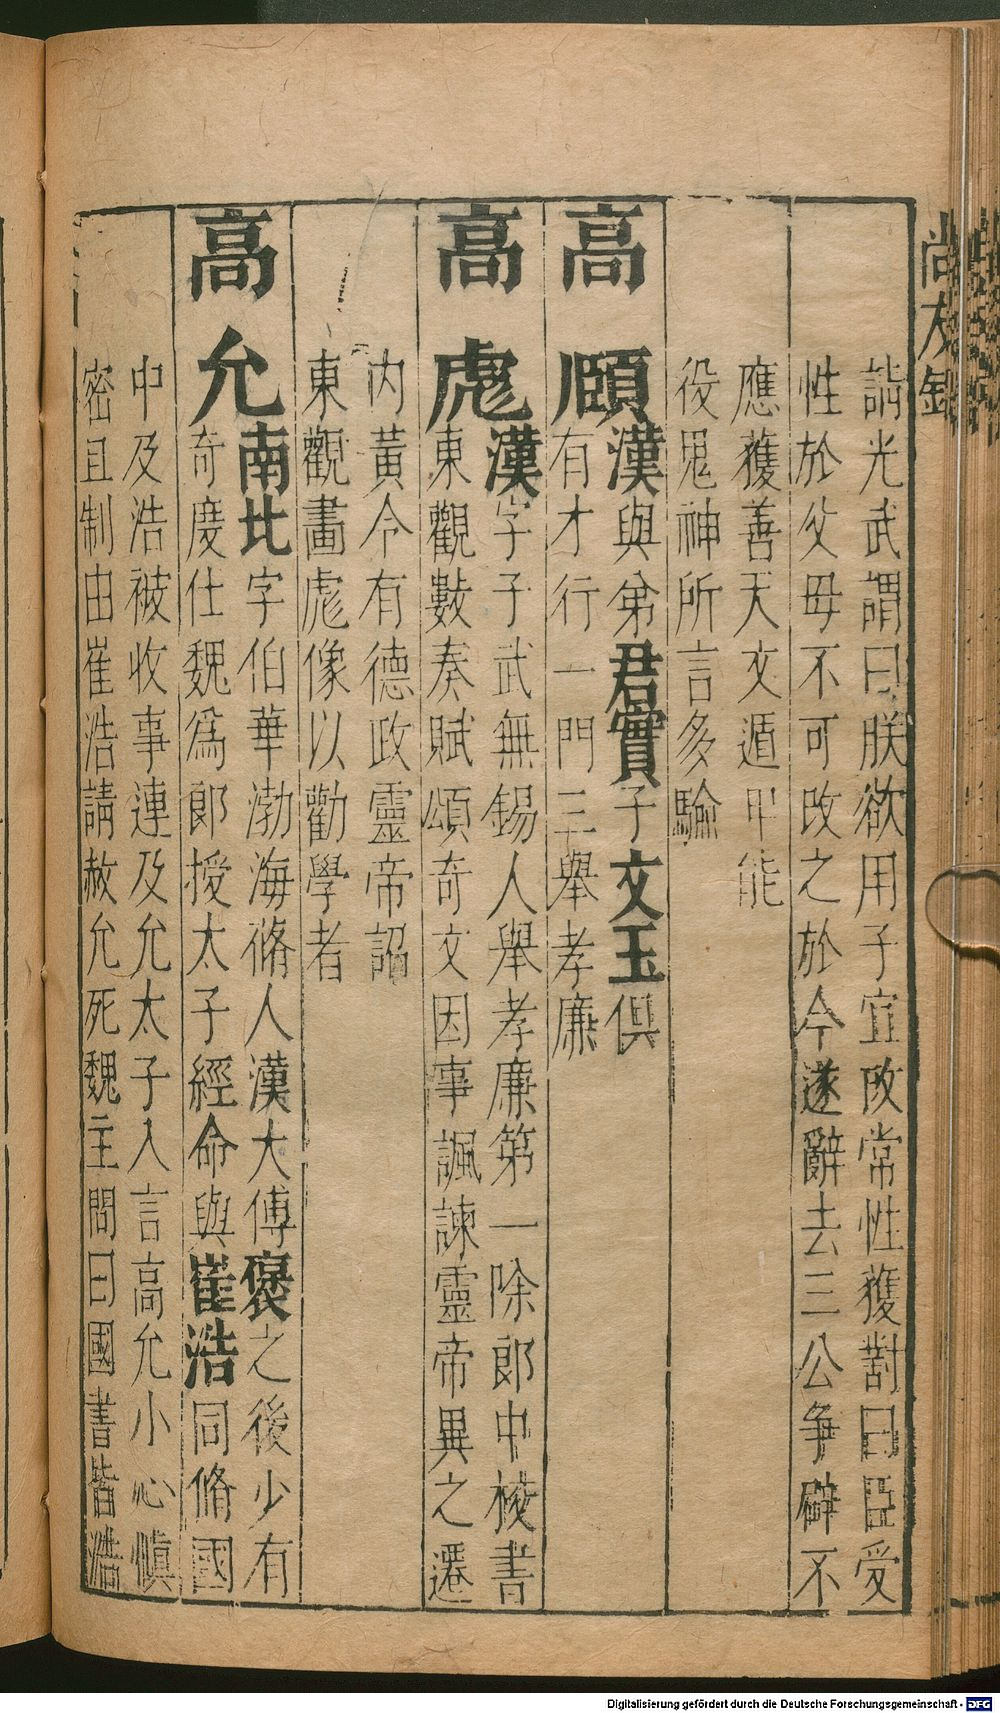 尚友錄
詣光武謂曰朕欲用子宜改常性獲對曰臣受
性於父母不可改之於今遂辭去三公爭辟不
應獲善天文遁甲能
役鬼神所言多驗
高頤漢與弟君實子文玉俱
有才行一門三舉孝廉
高彪漢字子武無錫人舉孝廉第一除郎中挍書
東觀數奏賦頌奇文因事諷諫靈帝異之遷
內黃令有德政靈帝詔
東觀畫彪像以勸學者
高允南北字伯華渤海脩人漢大傅褒之後少有
奇度仕魏爲郎授太子經命與崔浩同脩國
中及浩被收事連及允太子入言高允小心愼
密且制由崔浩請赦允死魏主問曰國書皆浩
Digitalisierung gefördert durch die Deutsche Forschungsgemeinschaft - DFG